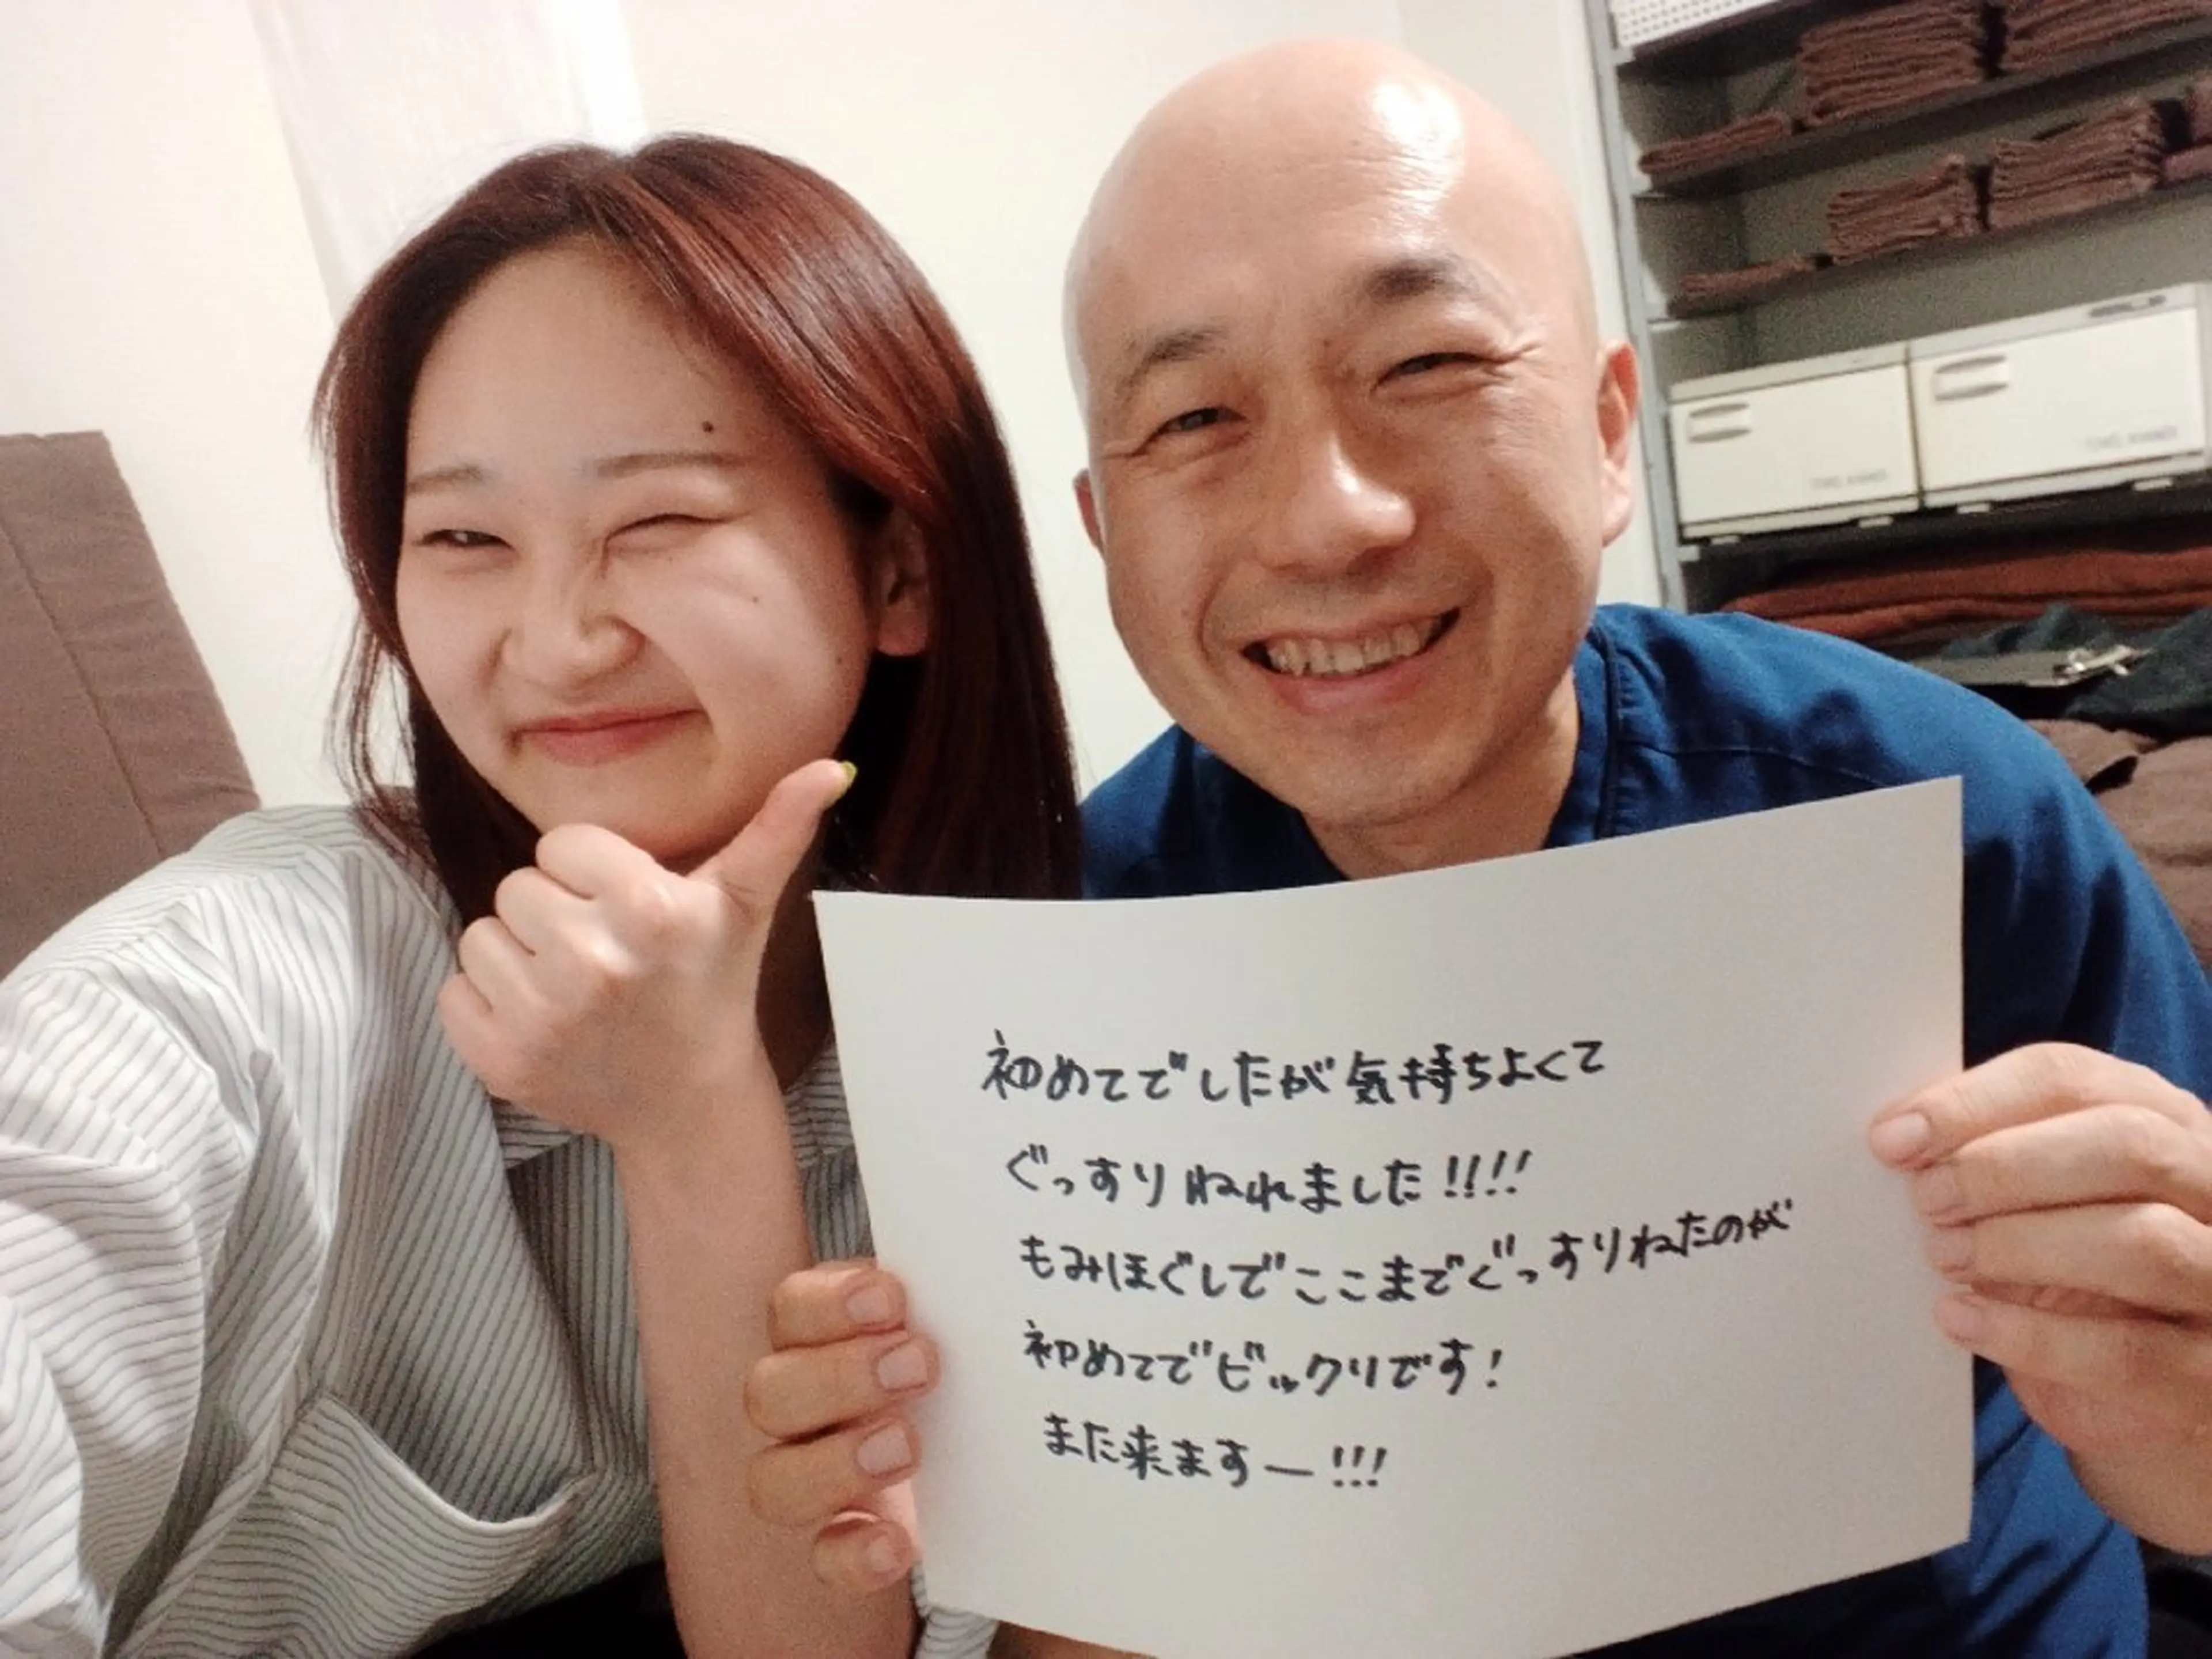 初めてでしたが気持ちよくて
ぐっすりねれました!!!!
もみほぐしでここまでぐっすりねたのが
初めてでビックリです!
また来ますー!!!